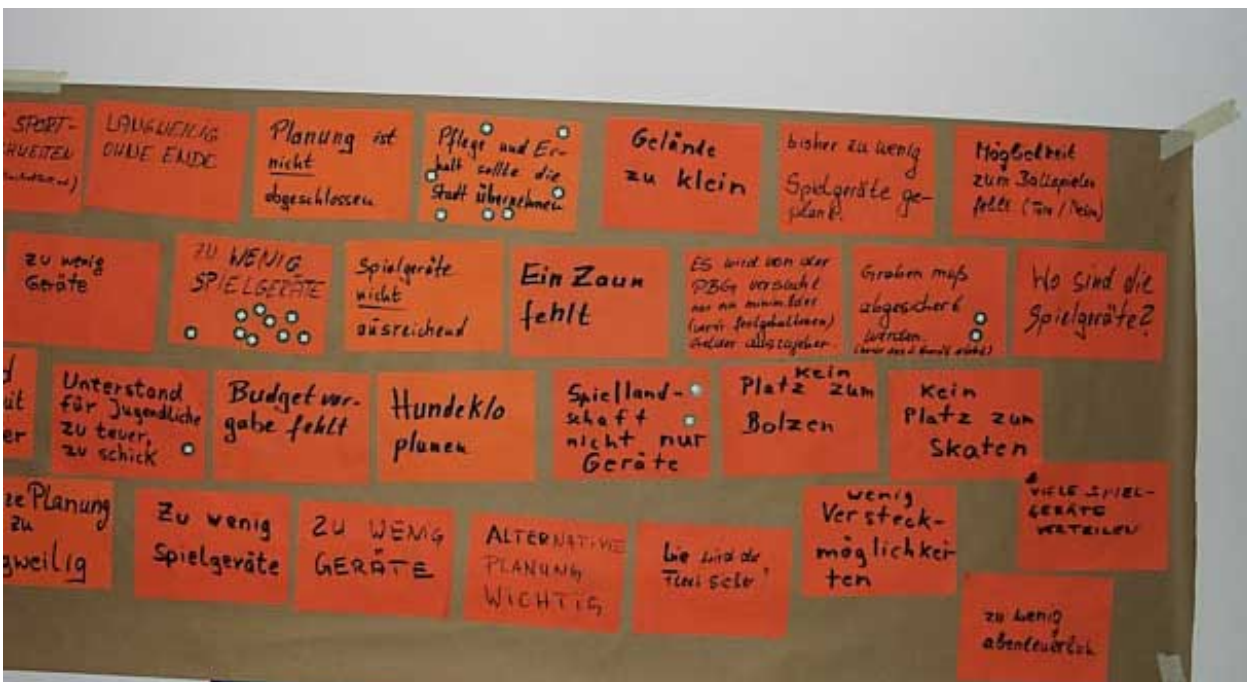 SPORT-
LANGWEILIG
OHNE ENDE
Planung ist
nicht
abgeschlossen
Pflege und Er-
halt sollte die
Stadt übernehmen
Gelände
zu klein
bisher zu wenig
Spielgeräte ge-
plant.
Möglichkeit
zum Ballspielen
fehlt
zu wenig
Geräte
ZU WENIG
SPIELGERÄTE
Spielgeräte
nicht
ausreichend
Ein Zaun
fehlt
ES wird von der
PBG versucht
nur
Gelder auszugeben.
Graben muß
abgesichert
werden.
Wo sind die
Spielgeräte?
Unterstand
für Jugendliche
zu teuer,
zu schick
Budgetvor-
gabe fehlt
Hundeklo
planen
Spielland-
schaft
nicht nur
Geräte
kein
Platz zum
Bolzen
Kein
Platz zum
Skaten
Planung
zu
gweilig
Zu wenig
Spielgeräte
ZU WENIG
GERÄTE
ALTERNATIVE
PLANUNG
WICHTIG
wenig
Versteck-
möglichkei-
ten
VIELE SPIEL-
GERÄTE
VERTEILEN
zu wenig
abenteuerlich